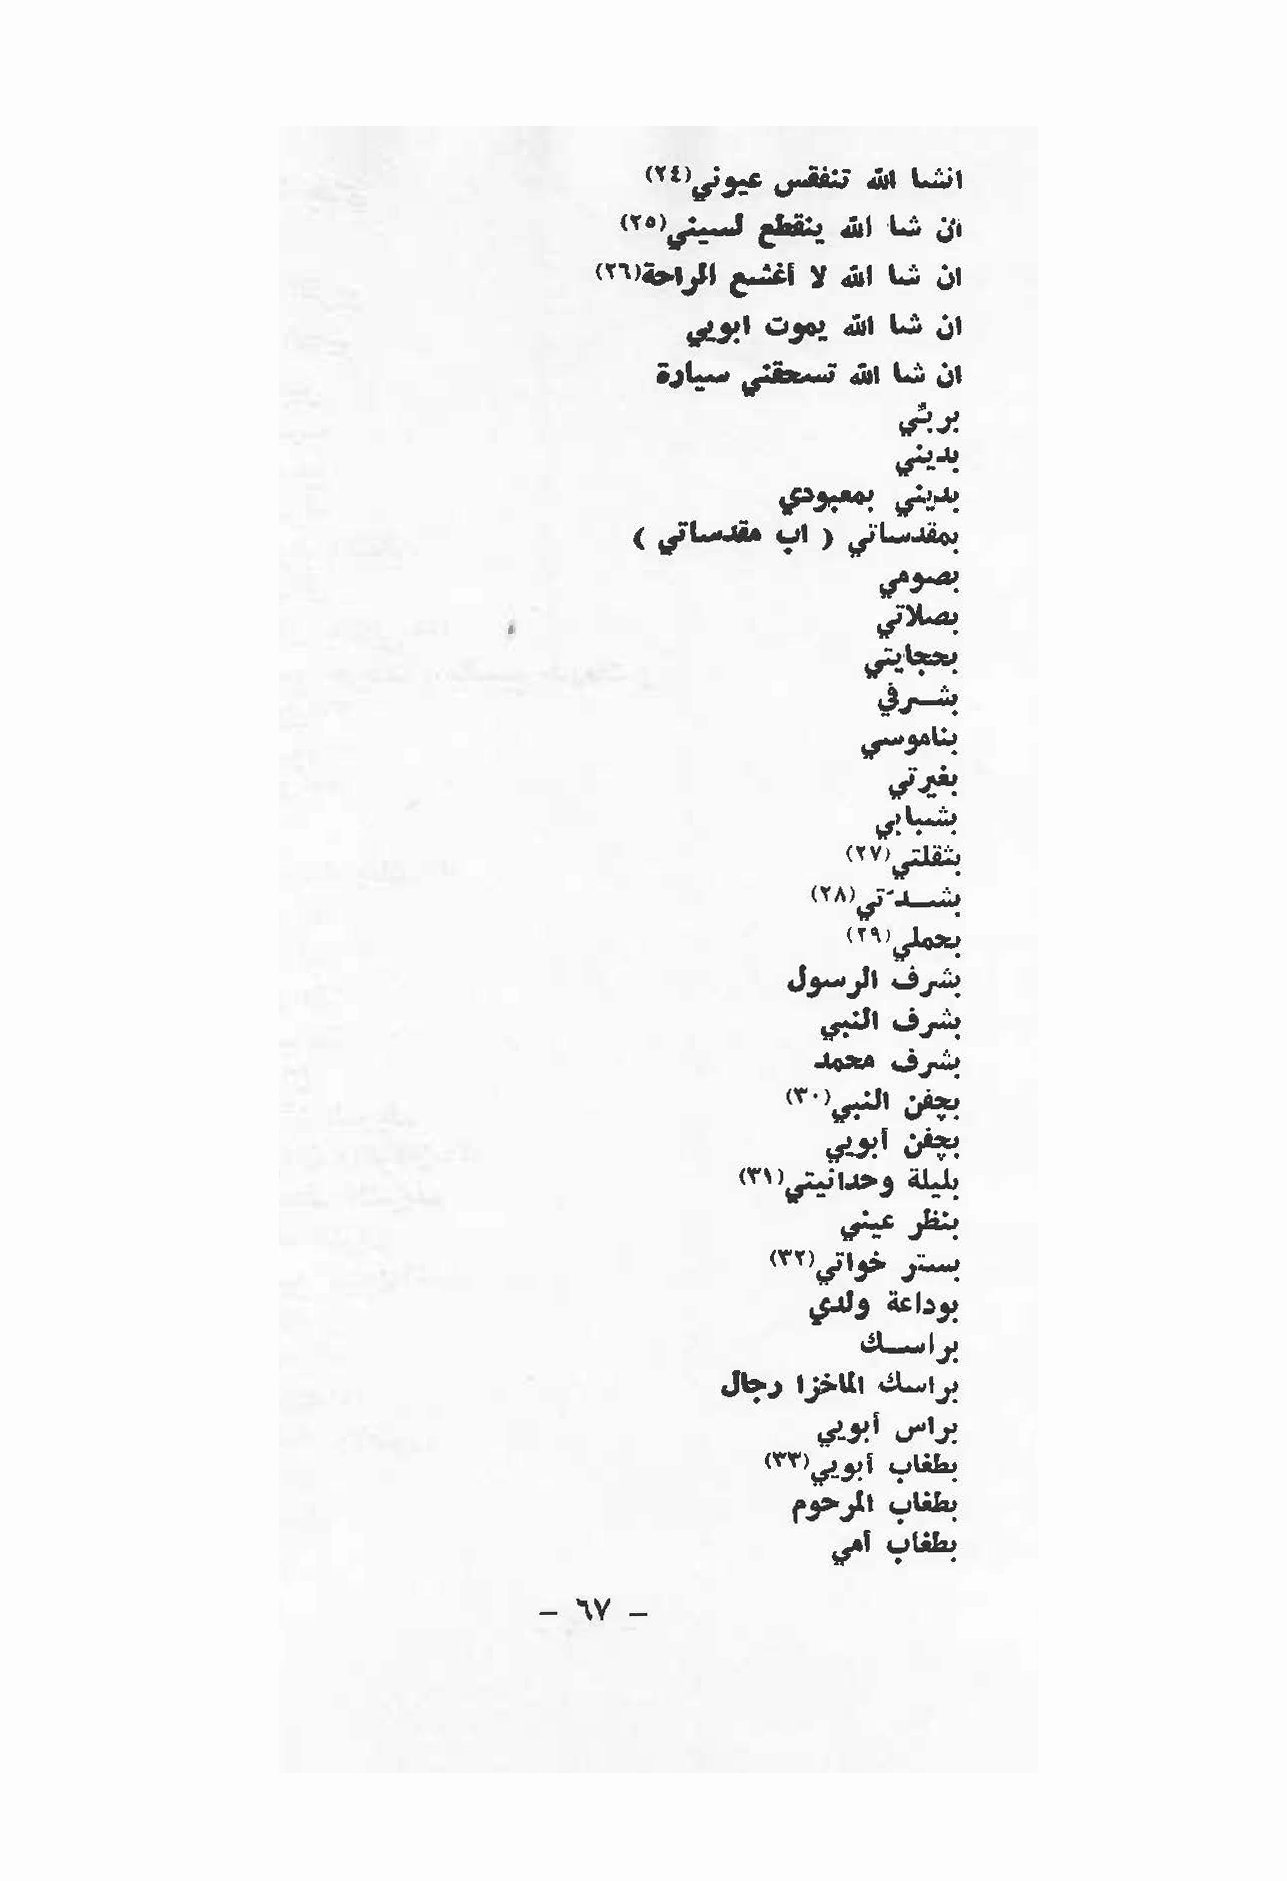 انشا الله تنفقس عيوني(٢٤)
ان شا الله ينقطع لسيني(٢٥)
ان شا الله لا أغشع الراحة(٢٦)
ان شا الله يموت ابويي
ان شا الله تسحقني سيارة
بربّي
بديني
بديني بمعبودي
بمقدساتي ( اب مقدساتي )
بصومي
بصلاتي
بحجايتي
بشـرفي
بناموسي
بغيرتي
بشبابي
بثقلتي(٢٧)
بشـدّتي(٢٨)
بحملي(٢٩)
بشرف الرسول
بشرف النبي
بشرف محمد
بچفن النبي(٣٠)
بچفن أبويي
بليلة وحدانيتي(٣١)
بنظر عيني
بستر خواتي(٣٢)
بوداعة ولدي
براسـك
براسك الماخزا رجال
براس أبويي
بطغاب أبويي(٣٣)
بطغاب المرحوم
بطغاب أمي
– ٦٧ –